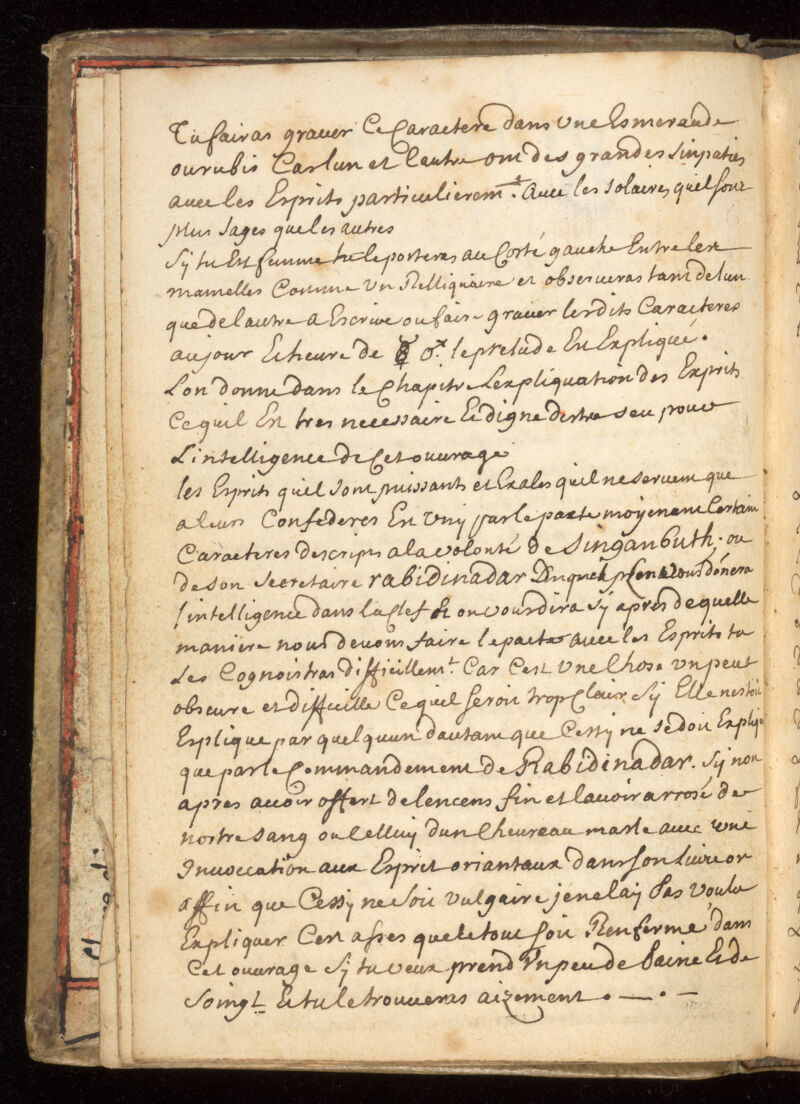 Tu fairas grauer Ce Caractere dans Une Esmeraude
ou rubis Car lun et lautre ont des grandes Sinpaties
auec les Esprits particulierem.t auec les solaires quil sont
plus sages que les autres
Sy tu Est femme tu le porteras au Corté gauche Entre les
mamelles Comme Un Relliquaire et obserueras tant de lun
que de lautre a Escrire ou faire grauer lesdits Caracteres
au jour Et heure de le prelude En Expliqué.
Lon donne dans le Chapitre Lexpliquation des Esprits
Ce quil En tres necessaire Et digne destre seu pour
Lintelligence de Cet ouurage
les Esprits quil sont puissants et Exales quil ne seruent que
a leurs Confederes En Uny par le pacte moyenant Certain
Caracteres descripts a la volonté de Singanbuth. ou
de son secretaire rabidinadar vous dónera
lintelligence dans la Clef Et on vous dira sy apres de quelle
maniere nous deuons faire le pacte auec les Esprits tu
Les Cognoistras difficillem.t Car Cest Une Chose un peut
obscure et difficille Ce quil seroit trop Clair Sy Elle nestoit
Explique par quelquun dautant que Cessy ne se doit Expliq
que par le Commandement de Rabidinadar. Sy non
apres auoir offert de lencens fin et lauoir arrosé de
nostre sang ou Celluy dun Cheureau masle auec une
Inuoccation aux Esprit oriantaux dans son Liure or
affin que Cessy ne soit vulgaire je ne lay pas voulu
Expliquer Cest asses que le tout soit Renfermé dans
Cet ouurage Sy tu veux prend Un peu de paine Et de
Soingt Et tu le trouueras aizement . — . —